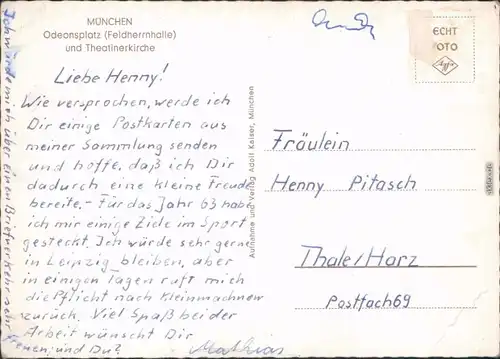 MÜNCHEN
Odeonsplatz (Feldherrnhalle)
und Theatinerkirche
ECHT
FOTO
Agfa
Liebe Henny!
Wie versprochen, werde ich
Dir einige Postkarten aus
meiner Sammlung senden
und hoffe, daß ich Dir
dadurch eine kleine Freude
bereite. – Für das Jahr 63 habe
ich mir einige Ziele im Sport
gesteckt. Ich würde sehr gerne
in Leipzig bleiben, aber
in einigen Tagen ruft mich
die Pflicht nach Kleinmachnow
zurück. Viel Spaß bei der
Arbeit wünscht Dir
Mathias
Ich würde mich über einen Briefverkehr sehr
freuen, und Du?
Aufnahme und Verlag Adolf Kaiser, München
Fräulein
Henny Pitasch
Thale/Harz
Postfach 69